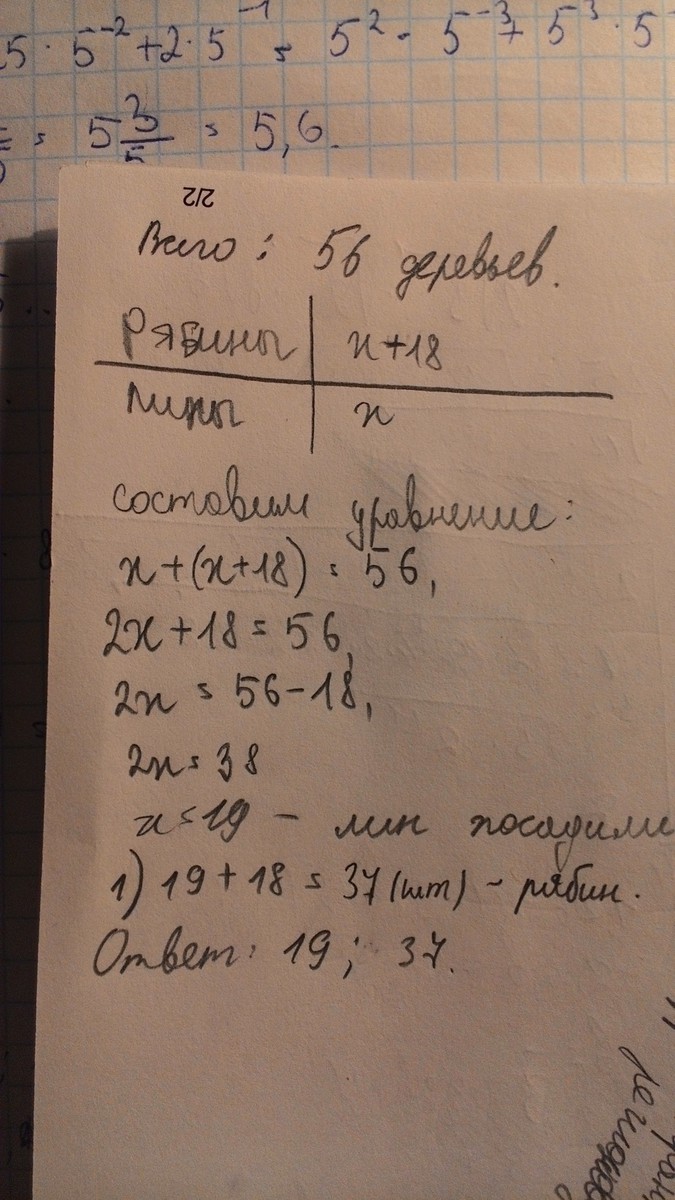 5 · 5⁻² + 2 · 5⁻¹ = 5² · 5⁻³ + 5³ · 5
= 5 3/5 = 5,6.
2/2
Всего : 56 деревьев.
Рябины | х+18
Липы | х
составим уравнение:
х+(х+18) = 56,
2х+18 = 56,
2х = 56-18,
2х = 38
х = 19 - лип посадили
1) 19 + 18 = 37 (шт) - рябин.
Ответ: 19 ; 37.